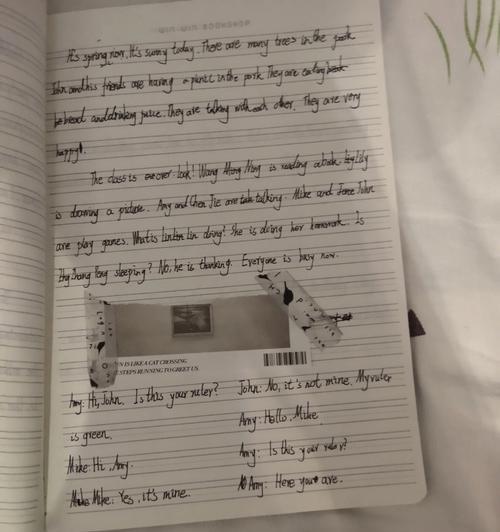 WIN-WIN BOOKSHOP
It's spring now. It's sunny today. There are many trees in the park
John and his friends are having a picnic in the park. They are eating
bread and drinking juice. They are talking with each other. They are very
happy.
The class is over. look! Wang Ming Ming is reading a book. Lily
is drawing a picture. Amy and Chen Jie are talking. Mike and John
are play games. What is Lin doing? She is doing her homework. Is
Zhang Peng sleeping? No, he is thinking. Everyone is busy now.
N IS LIKE A CAT CROSSING
STEPS RUNNING TO GREET US.
Amy: Hi, John. Is this your ruler?
is green.
Mike: Hi, Amy.
Mike: Yes, it's mine.
John: No, it's not mine. My ruler
Amy: Hello, Mike
Amy: Is this your ruler?
Amy: Here you are.